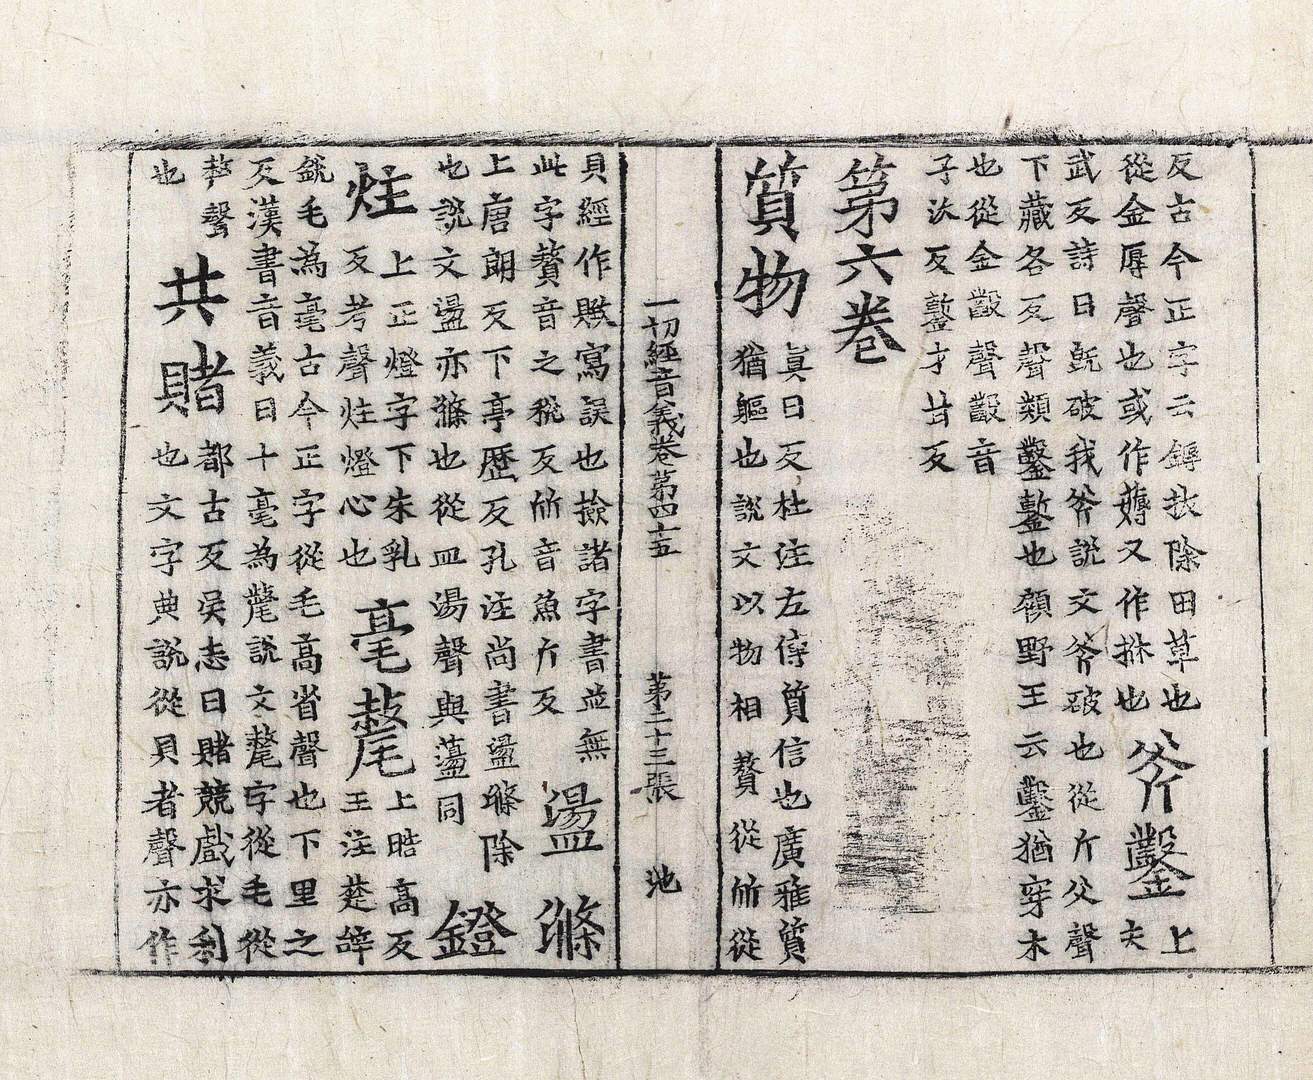 反古今正字云鎒扷除田草也
從金辱聲也或作薅又作𢫦也
斧鑿
上
夫
武反詩曰旣破我斧說文斧破也從斤父聲
下藏各反聲類鑿鏨也顧野王云鑿猶穿木
也從金毇聲毇音
子汏反鏨才甘反
第六卷
質物
眞日反杜注左傳質信也廣雅質
猶軀也說文以物相贅從斦從
一切經音義卷第四十五 第二十三張 池
貝經作䞈寫誤也撿諸字書並無
此字贅音之稅反斦音魚斤反
盪滌
上唐朗反下亭歷反孔注尚書盪滌除
也說文盪亦滌也從皿湯聲與蕩同
鐙
炷
上正燈字下朱乳
反考聲炷燈心也
毫氂
上晧高反
王注楚辭
銳毛為毫古今正字從毛高省聲也下里之
反漢書音義曰十毫為氂說文氂字從毛從
𠩺聲
也
共賭
都古反吳志曰賭競戲求利
也文字典說從貝者聲亦作